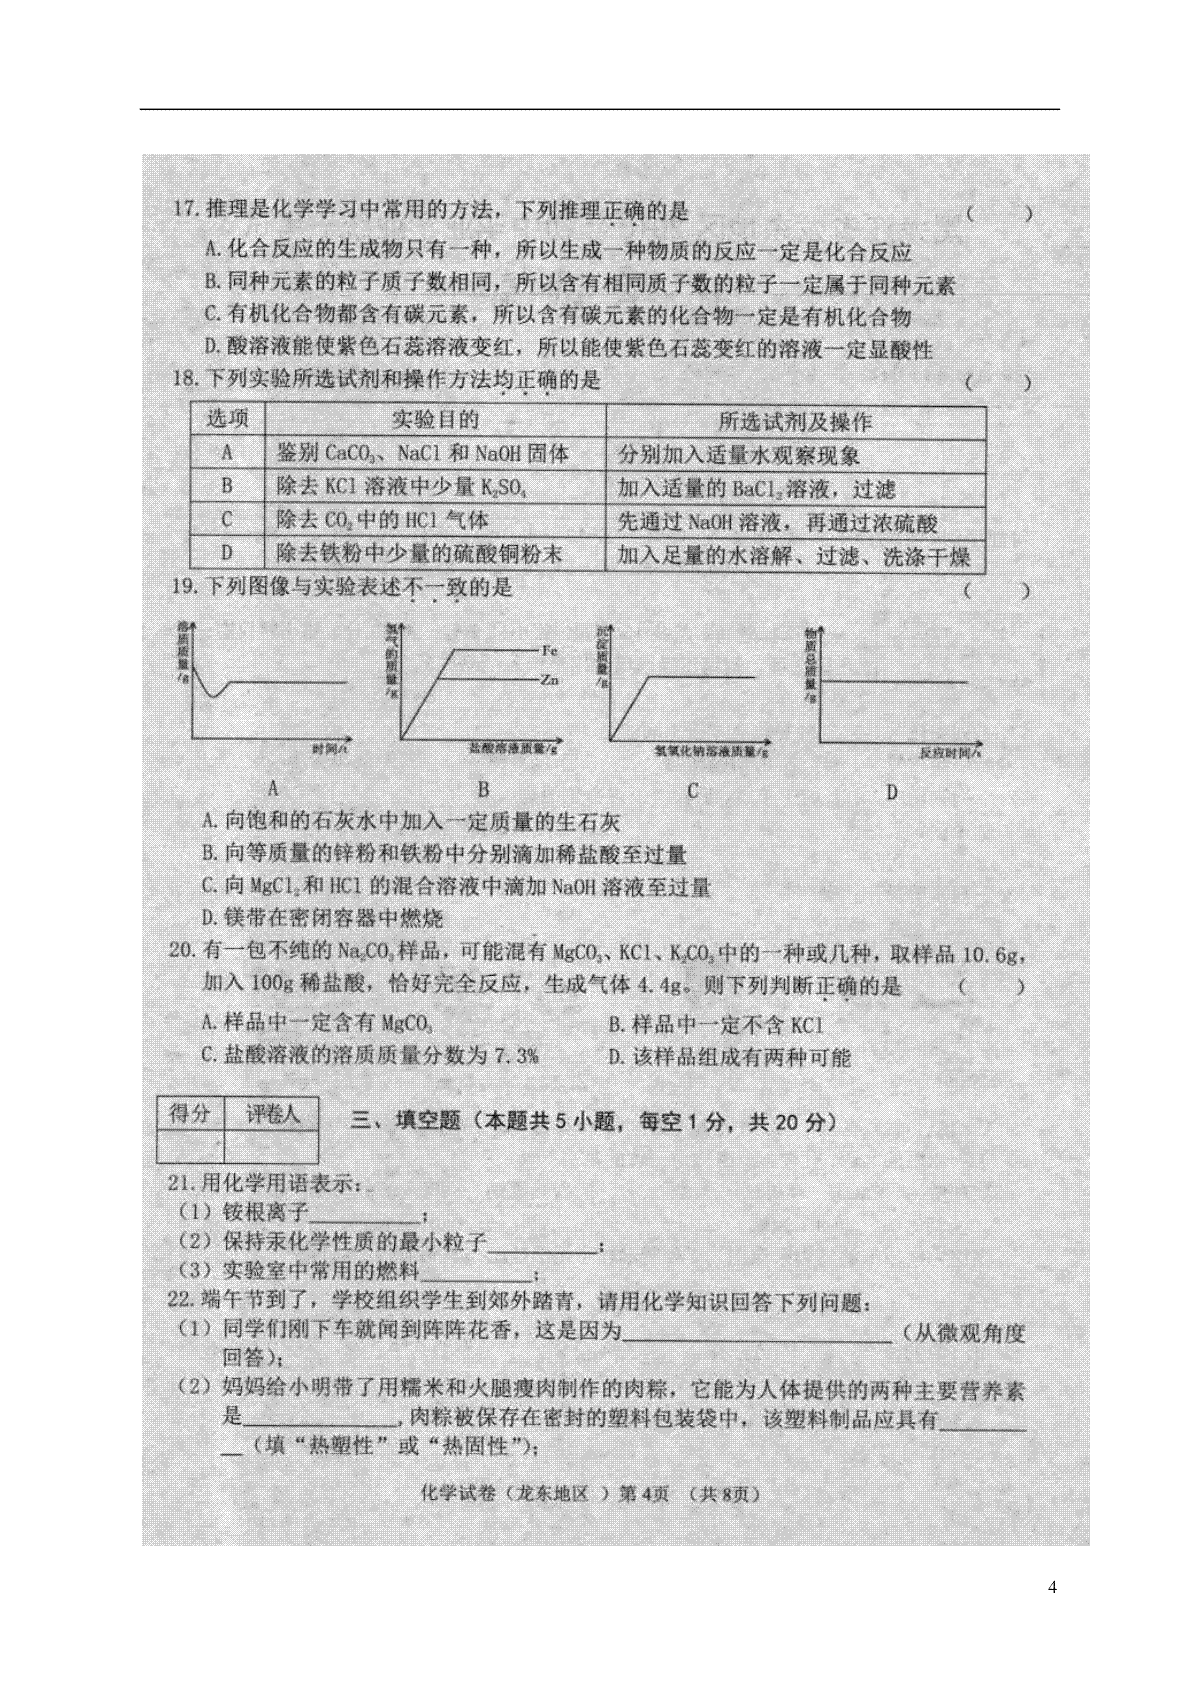 17.推理是化学学习中常用的方法，下列推理正确的是 （ ）
A.化合反应的生成物只有一种，所以生成一种物质的反应一定是化合反应
B.同种元素的粒子质子数相同，所以含有相同质子数的粒子一定属于同种元素
C.有机化合物都含有碳元素，所以含有碳元素的化合物一定是有机化合物
D.酸溶液能使紫色石蕊溶液变红，所以能使紫色石蕊变红的溶液一定显酸性
18.下列实验所选试剂和操作方法均正确的是 （ ）
选项 实验目的 所选试剂及操作
A 鉴别 CaCO₃、NaCl 和 NaOH 固体 分别加入适量水观察现象
B 除去 KCl 溶液中少量 K₂SO₄ 加入适量的 BaCl₂溶液，过滤
C 除去 CO₂中的 HCl 气体 先通过 NaOH 溶液，再通过浓硫酸
D 除去铁粉中少量的硫酸铜粉末 加入足量的水溶解、过滤、洗涤干燥
19.下列图像与实验表述不一致的是 （ ）
溶质质量/g 时间/t
氢气的质量/g Fe Zn 盐酸溶液质量/g
沉淀质量/g 氢氧化钠溶液质量/g
物质总质量/g 反应时间/s
A B C D
A.向饱和的石灰水中加入一定质量的生石灰
B.向等质量的锌粉和铁粉中分别滴加稀盐酸至过量
C.向 MgCl₂和 HCl 的混合溶液中滴加 NaOH 溶液至过量
D.镁带在密闭容器中燃烧
20.有一包不纯的 Na₂CO₃样品，可能混有 MgCO₃、KCl、K₂CO₃中的一种或几种，取样品 10.6g，
加入 100g 稀盐酸，恰好完全反应，生成气体 4.4g。则下列判断正确的是 （ ）
A.样品中一定含有 MgCO₃ B.样品中一定不含 KCl
C.盐酸溶液的溶质质量分数为 7.3% D.该样品组成有两种可能
得分 评卷人
三、填空题（本题共 5 小题，每空 1 分，共 20 分）
21.用化学用语表示：
（1）铵根离子__________；
（2）保持汞化学性质的最小粒子__________；
（3）实验室中常用的燃料__________；
22.端午节到了，学校组织学生到郊外踏青，请用化学知识回答下列问题：
（1）同学们刚下车就闻到阵阵花香，这是因为________________________（从微观角度
回答）；
（2）妈妈给小明带了用糯米和火腿瘦肉制作的肉粽，它能为人体提供的两种主要营养素
是______________,肉粽被保存在密封的塑料包装袋中，该塑料制品应具有________
__（填“热塑性”或“热固性”）；
化学试卷（龙东地区 ）第 4页 （共 8页）
4